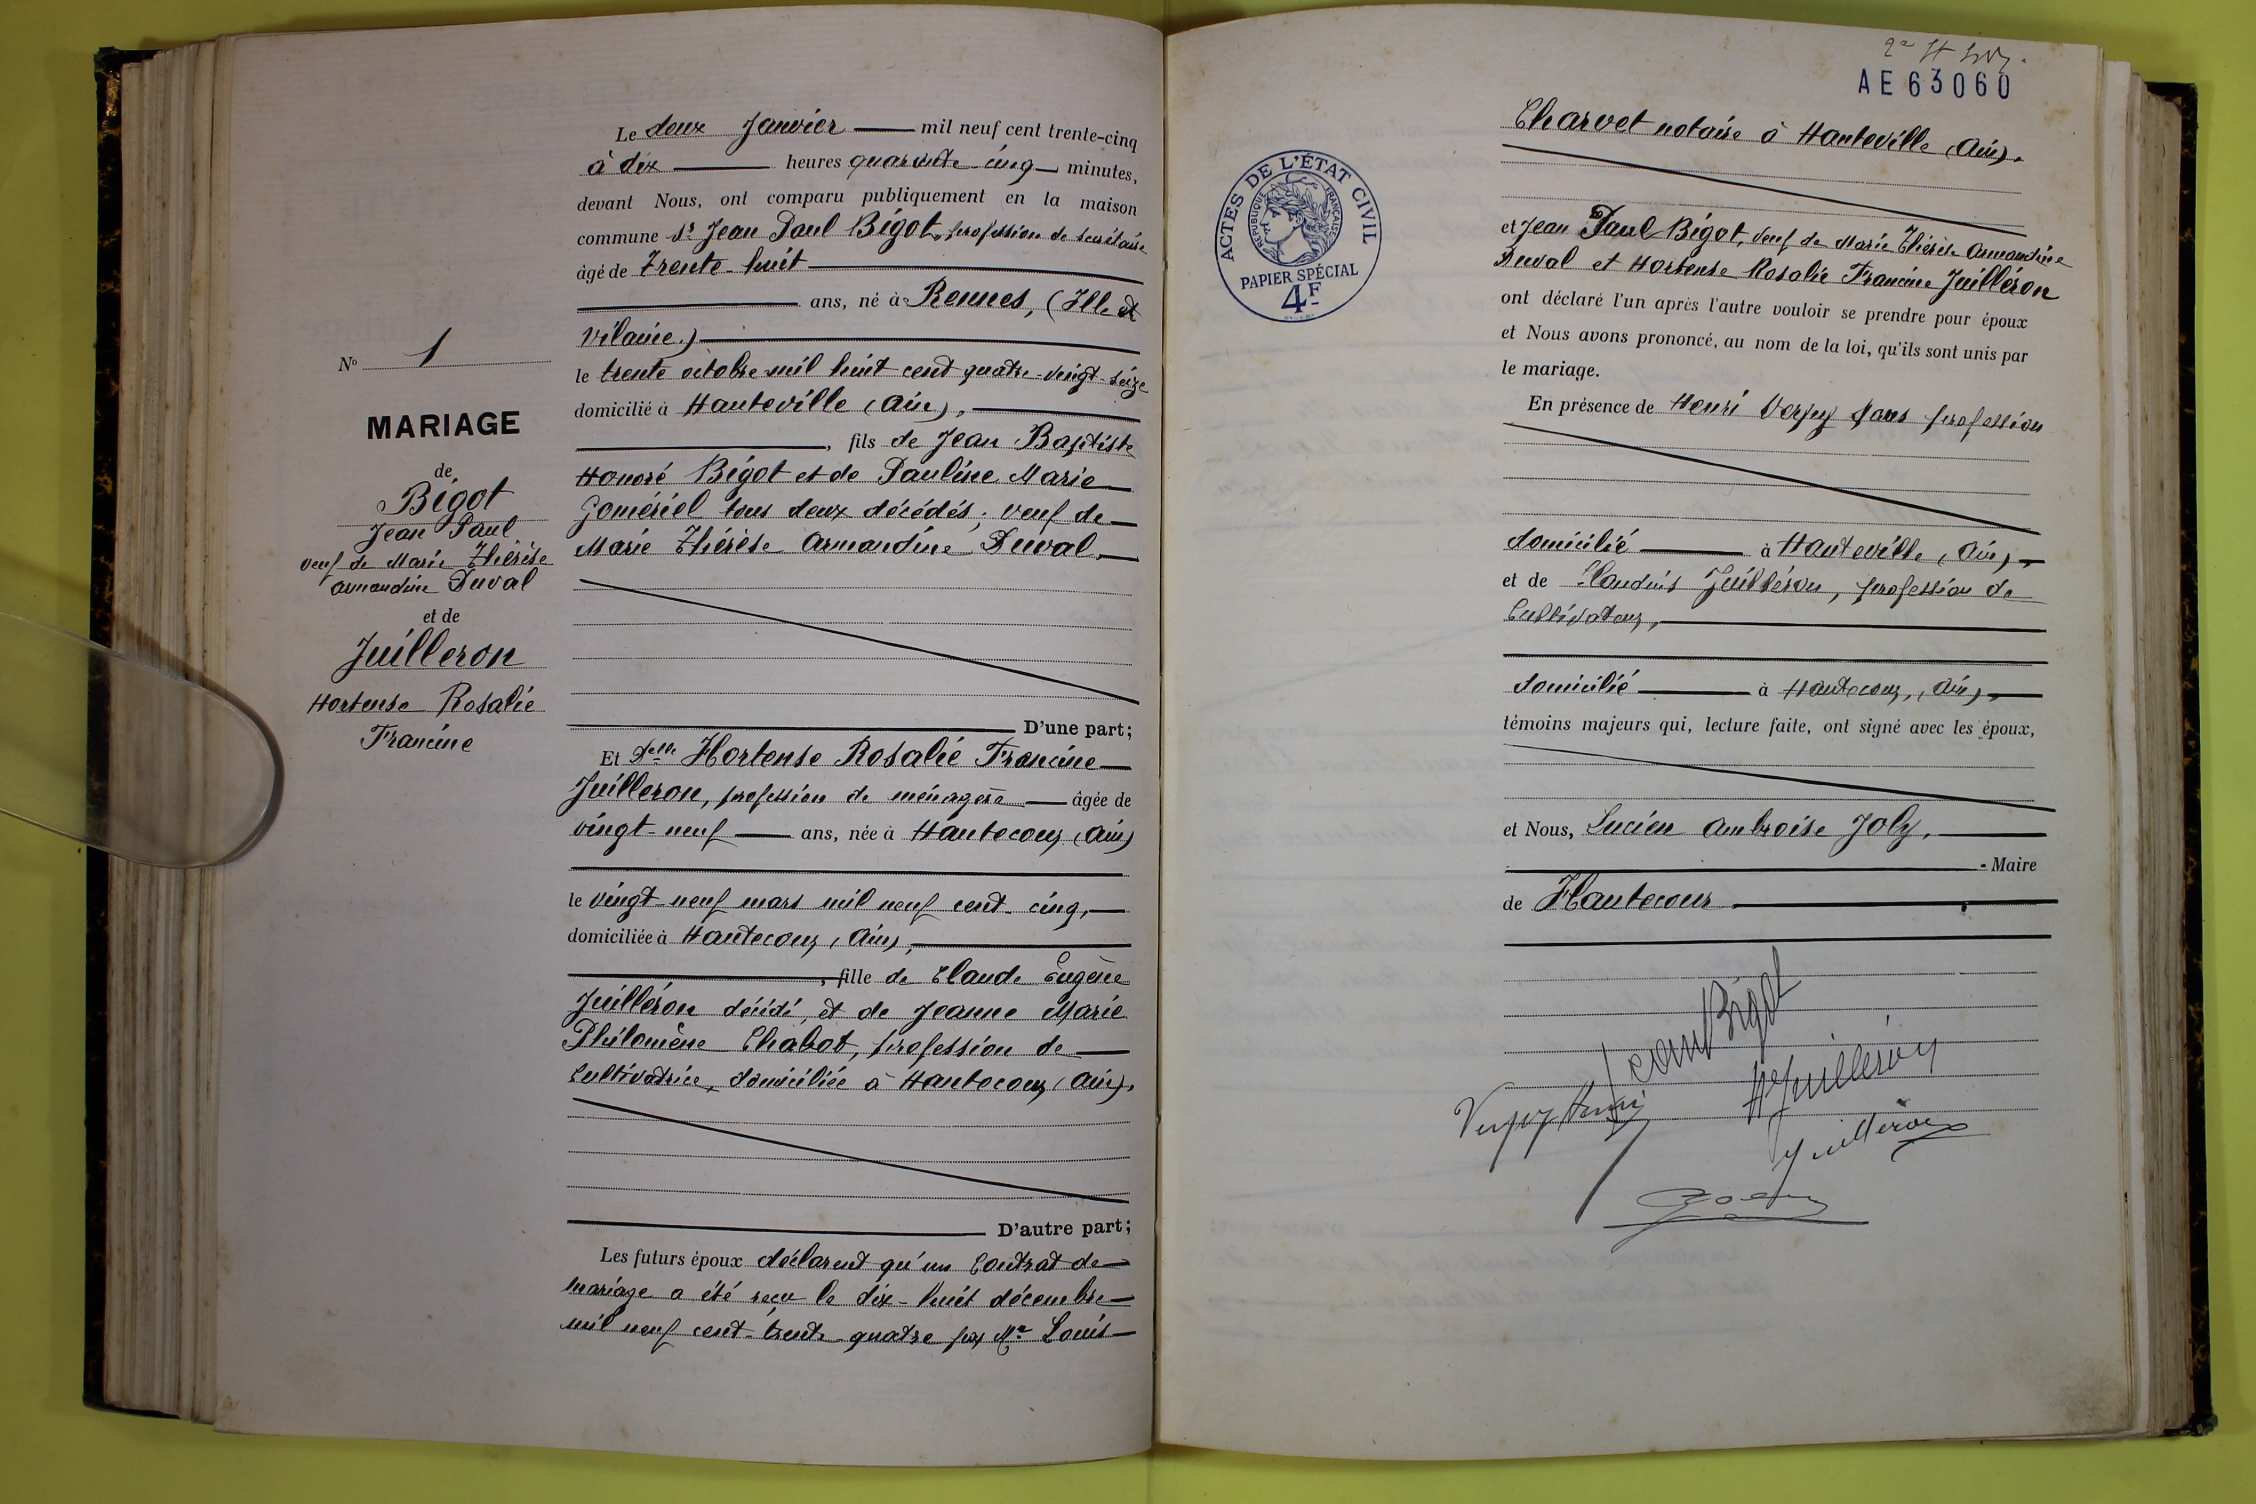 Le deux Janvier mil neuf cent trente-cinq
à dix heures quarante cinq minutes,
devant Nous, ont comparu publiquement en la maison
commune Sr Jean Paul Bigot, profession de secrétaire
âgé de trente-huit
ans, né à Rennes, (Ille et
Vilaine)
le trente octobre mil huit cent quatre-vingt-seize
domicilié à Hauteville (Ain),
, fils de Jean Baptiste
Honoré Bigot et de Pauline Marie
Gomériel tous deux décédés; veuf de
Marie Thérèse Armandine Duval,
D'une part;
Et Delle Hortense Rosalie Francine
Juilleron, profession de ménagère âgée de
vingt-neuf ans, née à Hautecour (Ain)
le vingt-neuf mars mil neuf cent cinq,
domiciliée à Hautecour (Ain),
, fille de Claude Eugène
Juilléron décédé, et de Jeanne Marie
Philomène Chabot, profession de
Cultivatrice, domiciliée à Hautecour (Ain).
D'autre part;
Les futurs époux déclarent qu'un Contrat de
mariage a été reçu le dix-huit décembre
mil neuf cent-trente-quatre par Me Louis
No 1
MARIAGE
de
Bigot
Jean Paul
veuf de Marie Thérèse
Armandine Duval
et de
Juilleron
Hortense Rosalie
Francine
AE63060
ACTES DE L'ÉTAT CIVIL
RÉPUBLIQUE FRANÇAISE
PAPIER SPÉCIAL
4F
Charvet notaire à Hauteville (Ain).
et Jean Paul Bigot, veuf de Marie Thérèse Armandine
Duval et Hortense Rosalie Francine Juilléron
ont déclaré l'un après l'autre vouloir se prendre pour époux
et Nous avons prononcé, au nom de la loi, qu'ils sont unis par
le mariage.
En présence de Henri Verjuy sans profession
domicilié à Hauteville (Ain),
et de Claudius Juilléron, profession de
Cultivateur,
domicilié à Hautecour, (Ain),
témoins majeurs qui, lecture faite, ont signé avec les époux,
et Nous, Lucien Ambroise Joly,
Maire
de Hautecour
Jean Bigot
H Juilléron
Verjuy Henri
Juilléron
Joly